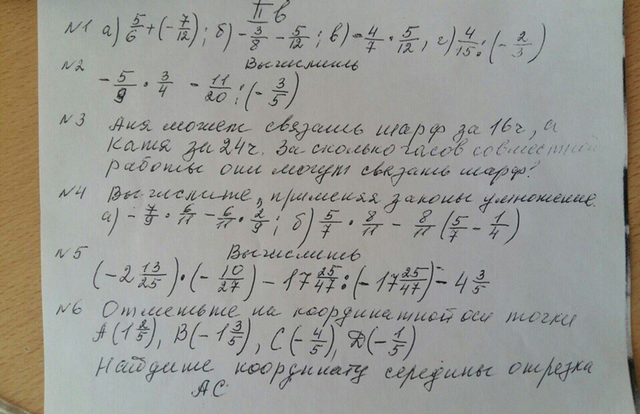 II в
№1 а) 5/6 + (- 7/12); б) - 3/8 - 5/12; в) - 4/7 · 5/12, г) 4/15 : (- 2/3)
№2 Вычислить
- 5/9 · 3/4 - 11/20 : (- 3/5)
№3 Аня может связать шарф за 16ч, а
Катя за 24ч. За сколько часов совместной
работы они могут связать шарф?
№4 Вычислите, применяя законы умножение.
а) - 7/9 · 6/11 - 6/11 · 2/9; б) 5/7 · 8/11 - 8/11 (5/7 - 1/4)
№5 Вычислить
(-2 13/25) · (- 10/27) - 17 25/47 : (- 17 25/47) - 4 3/5
№6 Отметьте на координатной оси точки
А(1 2/5), В(-1 3/5), С(- 4/5), D(- 1/5)
Найдите координату середины отрезка
АС